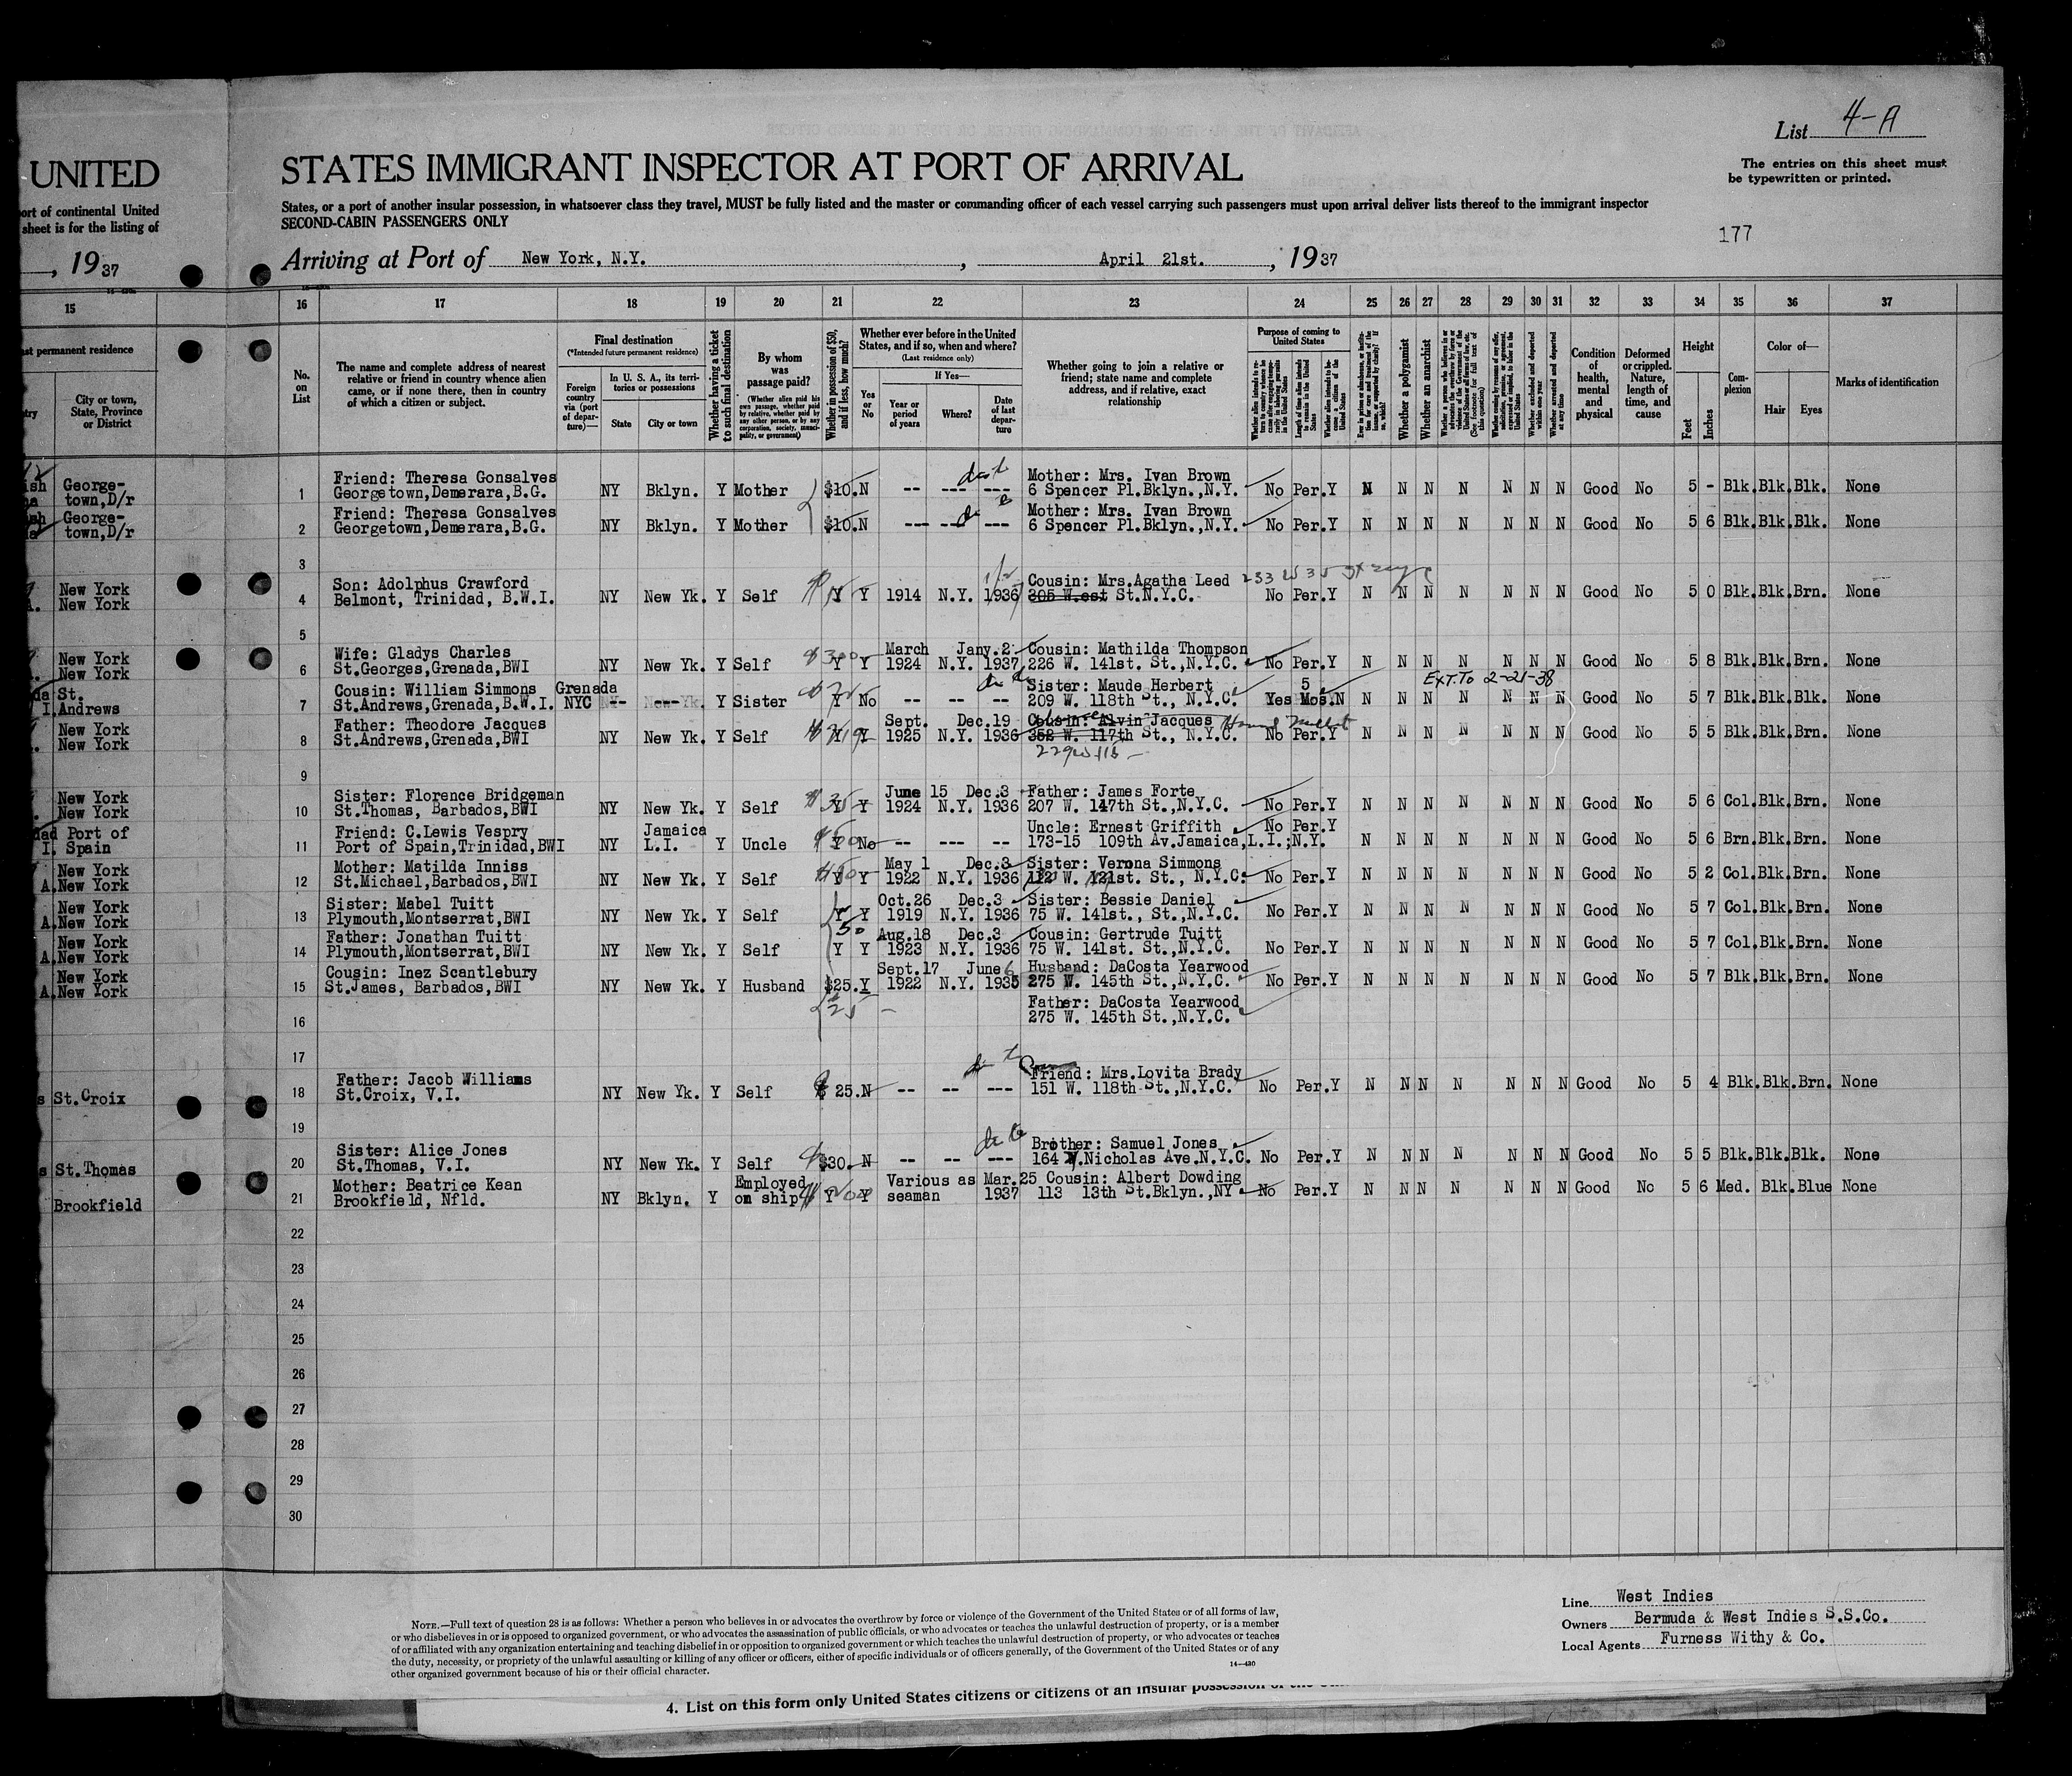 List 4-A
UNITED STATES IMMIGRANT INSPECTOR AT PORT OF ARRIVAL
The entries on this sheet must
be typewritten or printed.
ort of continental United States, or a port of another insular possession, in whatsoever class they travel, MUST be fully listed and the master or commanding officer of each vessel carrying such passengers must upon arrival deliver lists thereof to the immigrant inspector
sheet is for the listing of SECOND-CABIN PASSENGERS ONLY
177
, 1937 Arriving at Port of New York, N.Y. , April 21st. , 1937
15 16 17 18 19 20 21 22 23 24 25 26 27 28 29 30 31 32 33 34 35 36 37
st permanent residence
City or town, State, Province or District
No. on List
The name and complete address of nearest relative or friend in country whence alien came, or if none there, then in country of which a citizen or subject.
Final destination
(*Intended future permanent residence)
Foreign country via (port of departure)—
In U. S. A., its territories or possessions
State City or town
Whether having a ticket to such final destination
By whom was passage paid?
(Whether alien paid his own passage, whether paid by relative, whether paid by any other person, or by any corporation, society, municipality, or government)
Whether in possession of $50, and if less, how much?
Whether ever before in the United States, and if so, when and where?
(Last residence only)
Yes or No
If Yes—
Year or period of years
Where?
Date of last departure
Whether going to join a relative or friend; state name and complete address, and if relative, exact relationship
Purpose of coming to United States
Whether alien intends to return to country whence he came after engaging temporarily in laboring pursuits in the United States
Length of time alien intends to remain in the United States
Whether alien intends to become a citizen of the United States
Whether a polygamist
Whether an anarchist
Whether arrested and deported at any time
Condition of health, mental and physical
Deformed or crippled. Nature, length of time, and cause
Height
Feet Inches
Complexion
Color of—
Hair Eyes
Marks of identification
George-town, D/r 1 Friend: Theresa Gonsalves Georgetown, Demerara, B.G. NY Bklyn. Y Mother $10. N -- --- --- Mother: Mrs. Ivan Brown 6 Spencer Pl. Bklyn., N.Y. No Per. Y N N N N N N N Good No 5 - Blk. Blk. Blk. None
George-town, D/r 2 Friend: Theresa Gonsalves Georgetown, Demerara, B.G. NY Bklyn. Y Mother $10. N --- --- --- Mother: Mrs. Ivan Brown 6 Spencer Pl. Bklyn., N.Y. No Per. Y N N N N N N N Good No 5 6 Blk. Blk. Blk. None
3
New York New York 4 Son: Adolphus Crawford Belmont, Trinidad, B.W.I. NY New Yk. Y Self Y Y 1914 N.Y. 1936 Cousin: Mrs. Agatha Leed 305 W.est St. N.Y.C. No Per. Y N N N N N N N Good No 5 0 Blk. Blk. Brn. None
5
New York New York 6 Wife: Gladys Charles St. Georges, Grenada, BWI NY New Yk. Y Self Y Y March 1924 N.Y. Jany. 2 1937 Cousin: Mathilda Thompson 226 W. 141st. St., N.Y.C. No Per. Y N N N N N N N Good No 5 8 Blk. Blk. Brn. None
EXT. To 2-21-38
St. Andrews 7 Cousin: William Simmons St. Andrews, Grenada, B.W.I. Grenada NYC -- New Yk. Y Sister Y No -- -- -- Sister: Maude Herbert 209 W. 118th St., N.Y.C. Yes 5 Mos. N N N N N N N N Good No 5 7 Blk. Blk. Brn. None
New York New York 8 Father: Theodore Jacques St. Andrews, Grenada, BWI NY New Yk. Y Self Y Y Sept. 1925 N.Y. Dec. 19 1936 Cousin: Alvin Jacques 352 W. 117th St., N.Y.C. No Per. Y N N N N N N N Good No 5 5 Blk. Blk. Brn. None
9
New York New York 10 Sister: Florence Bridgeman St. Thomas, Barbados, BWI NY New Yk. Y Self Y Y June 15 1924 N.Y. Dec. 3 1936 Father: James Forte 207 W. 147th St., N.Y.C. No Per. Y N N N N N N N Good No 5 6 Col. Blk. Brn. None
Port of Spain 11 Friend: C. Lewis Vespry Port of Spain, Trinidad, BWI NY Jamaica L.I. Y Uncle Y No -- --- -- Uncle: Ernest Griffith 173-15 109th Av. Jamaica, L.I.; N.Y. No Per. Y N N N N N N N Good No 5 6 Brn. Blk. Brn. None
New York New York 12 Mother: Matilda Inniss St. Michael, Barbados, BWI NY New Yk. Y Self Y Y May 1 1922 N.Y. Dec. 3 1936 Sister: Verona Simmons 112 W. 121st. St., N.Y.C. No Per. Y N N N N N N N Good No 5 2 Col. Blk. Brn. None
New York New York 13 Sister: Mabel Tuitt Plymouth, Montserrat, BWI NY New Yk. Y Self Y Y Oct. 26 1919 N.Y. Dec. 3 1936 Sister: Bessie Daniel 75 W. 141st., St., N.Y.C. No Per. Y N N N N N N N Good No 5 7 Col. Blk. Brn. None
50
New York New York 14 Father: Jonathan Tuitt Plymouth, Montserrat, BWI NY New Yk. Y Self Y Y Aug. 18 1923 N.Y. Dec. 3 1936 Cousin: Gertrude Tuitt 75 W. 141st. St., N.Y.C. No Per. Y N N N N N N N Good No 5 7 Col. Blk. Brn. None
New York New York 15 Cousin: Inez Scantlebury St. James, Barbados, BWI NY New Yk. Y Husband $25. Y Sept. 17 1922 N.Y. June 6 1935 Husband: DaCosta Yearwood 275 W. 145th St., N.Y.C. No Per. Y N N N N N N N Good No 5 7 Blk. Blk. Brn. None
16 25 Father: DaCosta Yearwood 275 W. 145th St., N.Y.C.
17
St. Croix 18 Father: Jacob Williams St. Croix, V.I. NY New Yk. Y Self $ 25. N -- -- --- Friend: Mrs. Lovita Brady 151 W. 118th St., N.Y.C. No Per. Y N N N N N N N Good No 5 4 Blk. Blk. Brn. None
19
St. Thomas 20 Sister: Alice Jones St. Thomas, V.I. NY New Yk. Y Self $30. N -- -- --- Brother: Samuel Jones 164 Nicholas Ave. N.Y.C. No Per. Y N N N N N N N Good No 5 5 Blk. Blk. Blk. None
Brookfield 21 Mother: Beatrice Kean Brookfield, Nfld. NY Bklyn. Y Employed on ship Y Y Various as seaman Mar. 25 1937 Cousin: Albert Dowding 113 13th St. Bklyn., NY No Per. Y N N N N N N N Good No 5 6 Med. Blk. Blue None
22
23
24
25
26
27
28
29
30
NOTE.—Full text of question 28 is as follows: Whether a person who believes in or advocates the overthrow by force or violence of the Government of the United States or of all forms of law,
or who disbelieves in or is opposed to organized government, or who advocates the assassination of public officials, or who advocates or teaches the unlawful destruction of property, or is a member
of or affiliated with any organization entertaining and teaching disbelief in or opposition to organized government or which teaches the unlawful destruction of property, or who advocates or teaches
the duty, necessity, or propriety of the unlawful assaulting or killing of any officer or officers, either of specific individuals or of officers generally, of the Government of the United States or of any
other organized government because of his or their official character.
14—430
Line West Indies
Owners Bermuda & West Indies S.S.Co.
Local Agents Furness Withy & Co.
4. List on this form only United States citizens or citizens of an insular possession of the